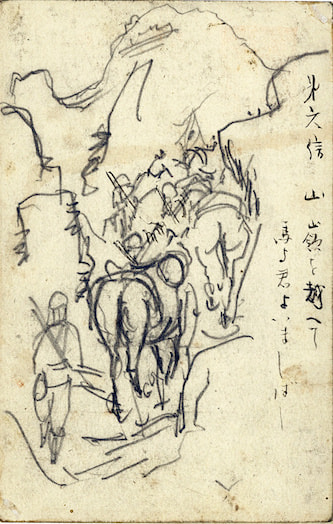 㐧六信 山嶺を越へて
馬よ君よいましばし